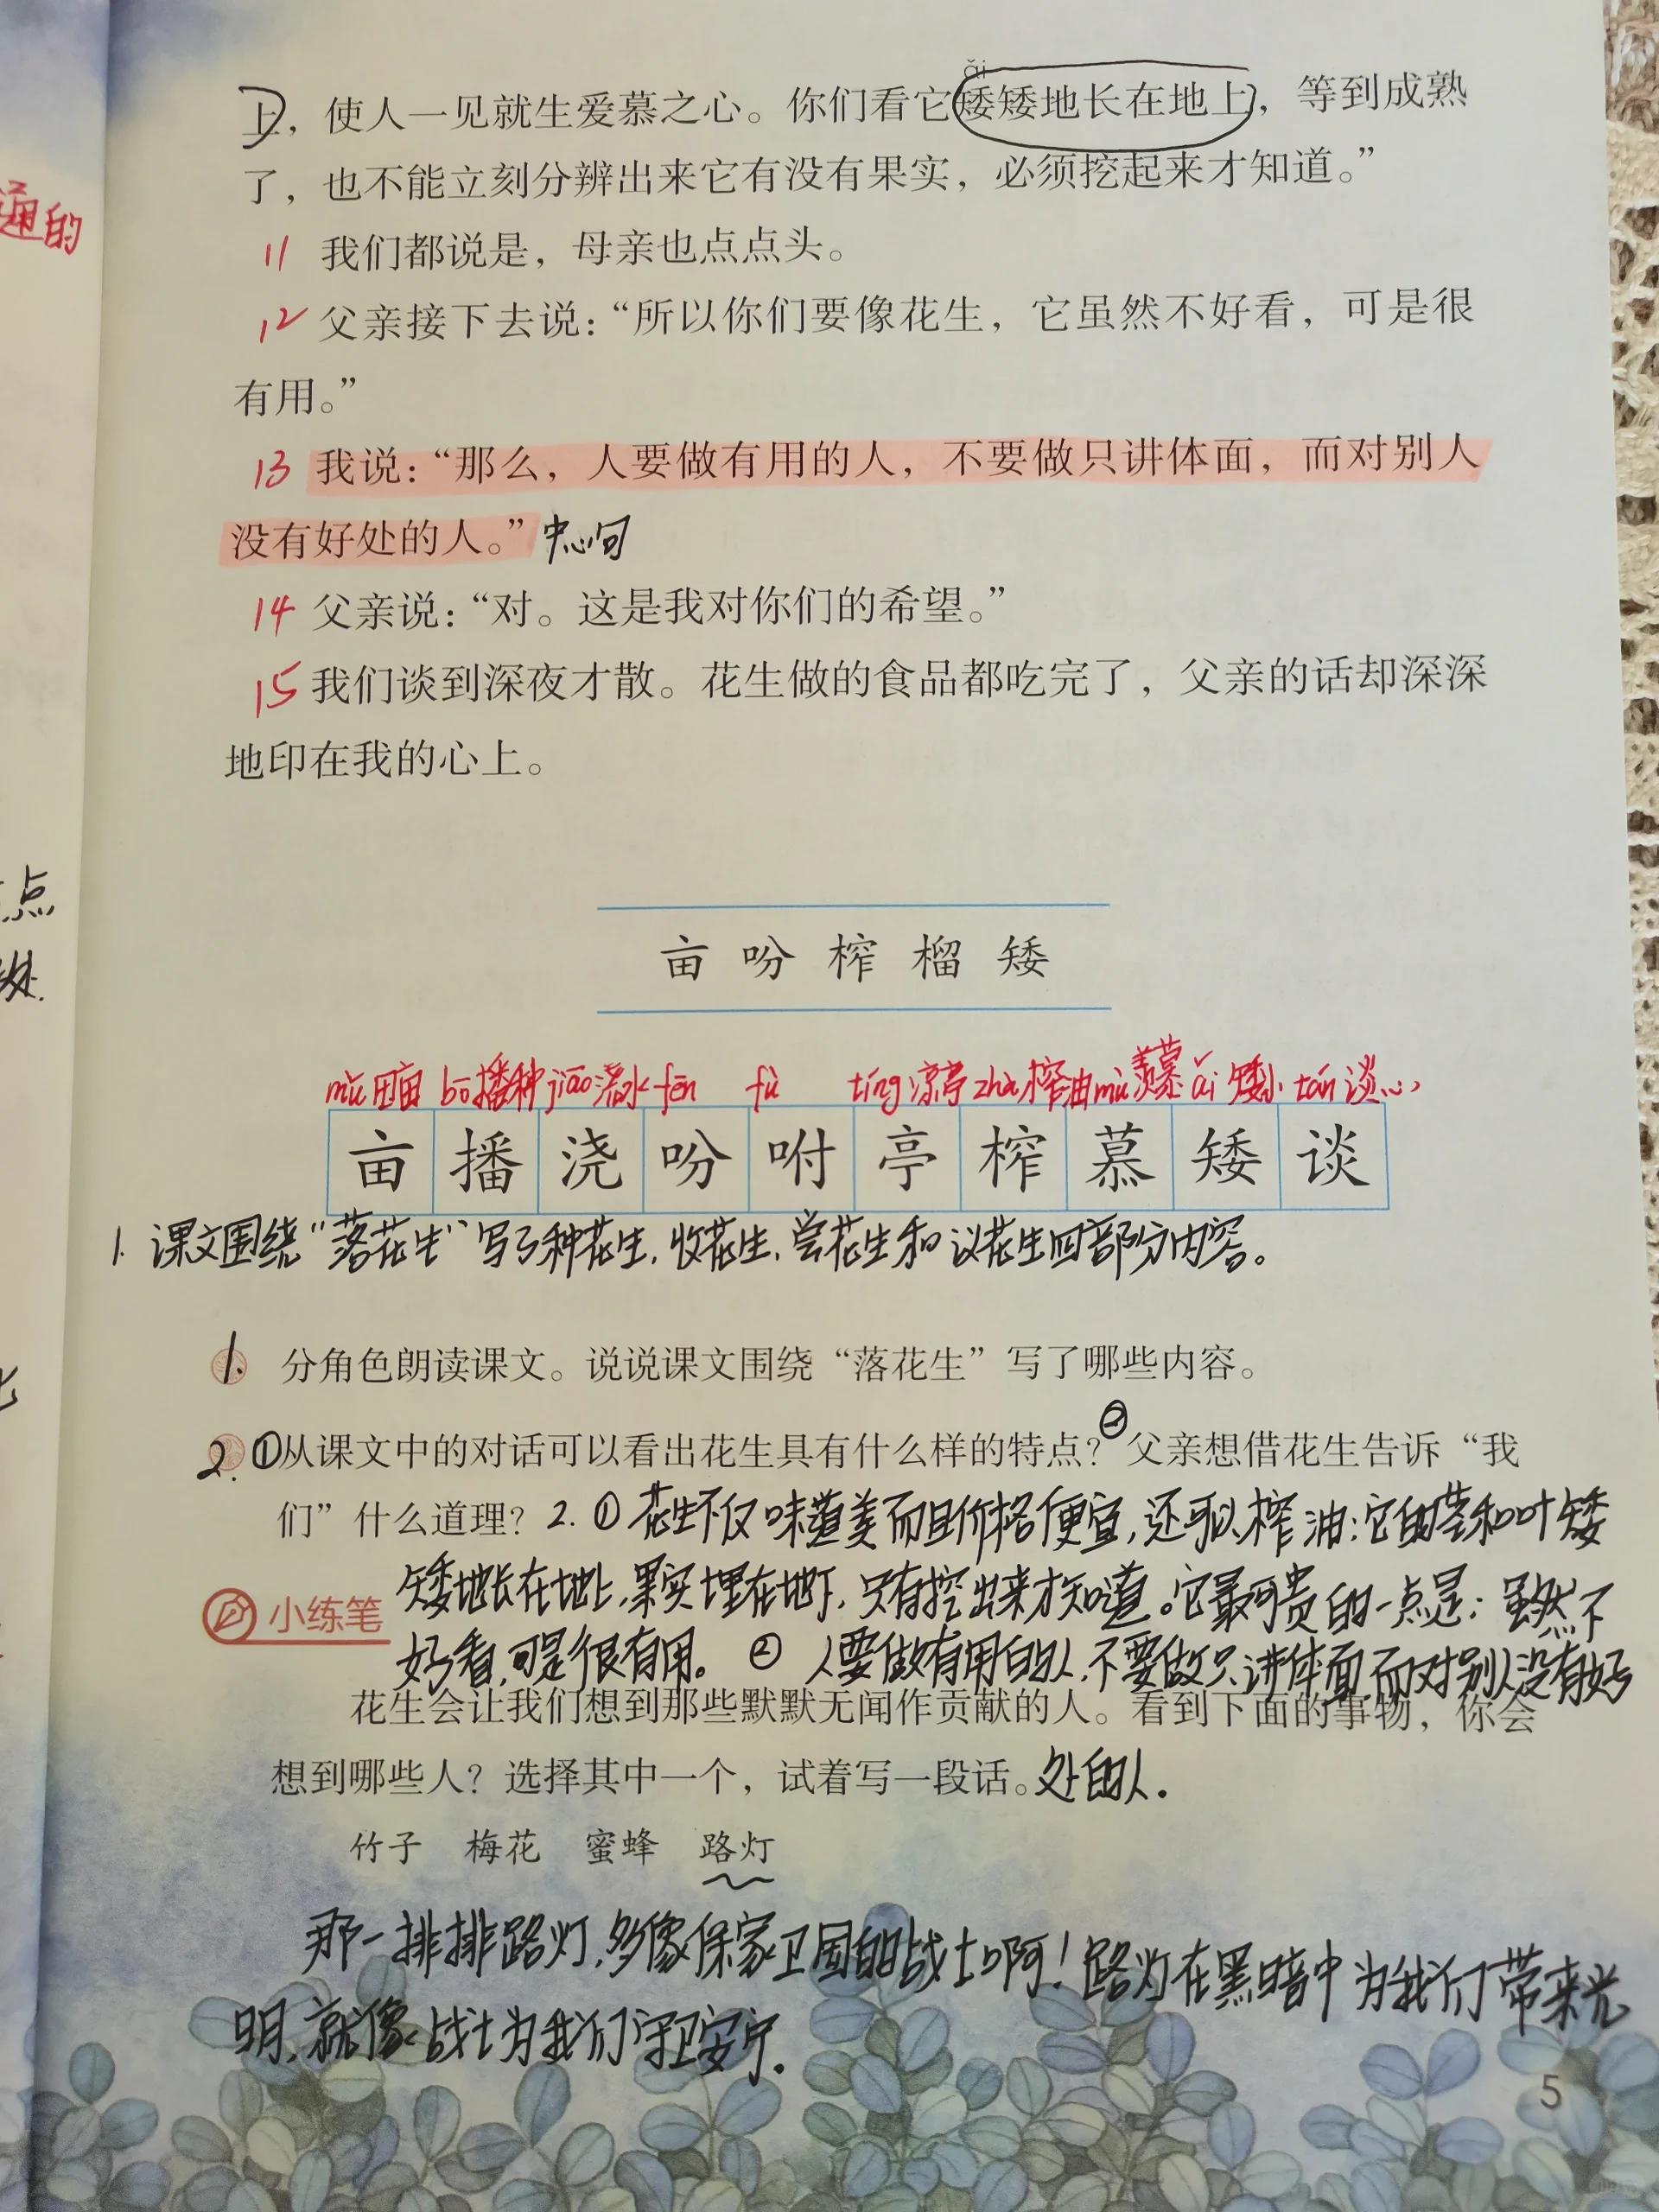 通的
点
处.
ǎi
上，使人一见就生爱慕之心。你们看它矮矮地长在地上，等到成熟
了，也不能立刻分辨出来它有没有果实，必须挖起来才知道。”
11 我们都说是，母亲也点点头。
12 父亲接下去说：“所以你们要像花生，它虽然不好看，可是很
有用。”
13 我说：“那么，人要做有用的人，不要做只讲体面，而对别人
没有好处的人。” 中心句
14 父亲说：“对。这是我对你们的希望。”
15 我们谈到深夜才散。花生做的食品都吃完了，父亲的话却深深
地印在我的心上。
亩 吩 榨 榴 矮
mǔ 田亩 bō 播种 jiāo 浇水 fēn fù tíng 凉亭 zhà 榨油 mù 羡慕 ǎi 矮小 tán 谈心
亩 播 浇 吩 咐 亭 榨 慕 矮 谈
1. 课文围绕“落花生”写了种花生，收花生，尝花生和议花生四部分内容。
1. 分角色朗读课文。说说课文围绕“落花生”写了哪些内容。
2. ①从课文中的对话可以看出花生具有什么样的特点？②父亲想借花生告诉“我
们”什么道理？ 2. ①花生不仅味道美而且价格便宜，还可以榨油；它的茎和叶矮
矮地长在地上，果实埋在地下，只有挖出来才知道。它最可贵的一点是：虽然不
小练笔
好看，可是很有用。 ② 人要做有用的人，不要做只讲体面，而对别人没有好
花生会让我们想到那些默默无闻作贡献的人。看到下面的事物，你会
想到哪些人？选择其中一个，试着写一段话。处的人.
竹子 梅花 蜜蜂 路灯
那一排排路灯，多像保家卫国的战士啊！路灯在黑暗中为我们带来光
明，就像战士为我们守卫安宁.
5